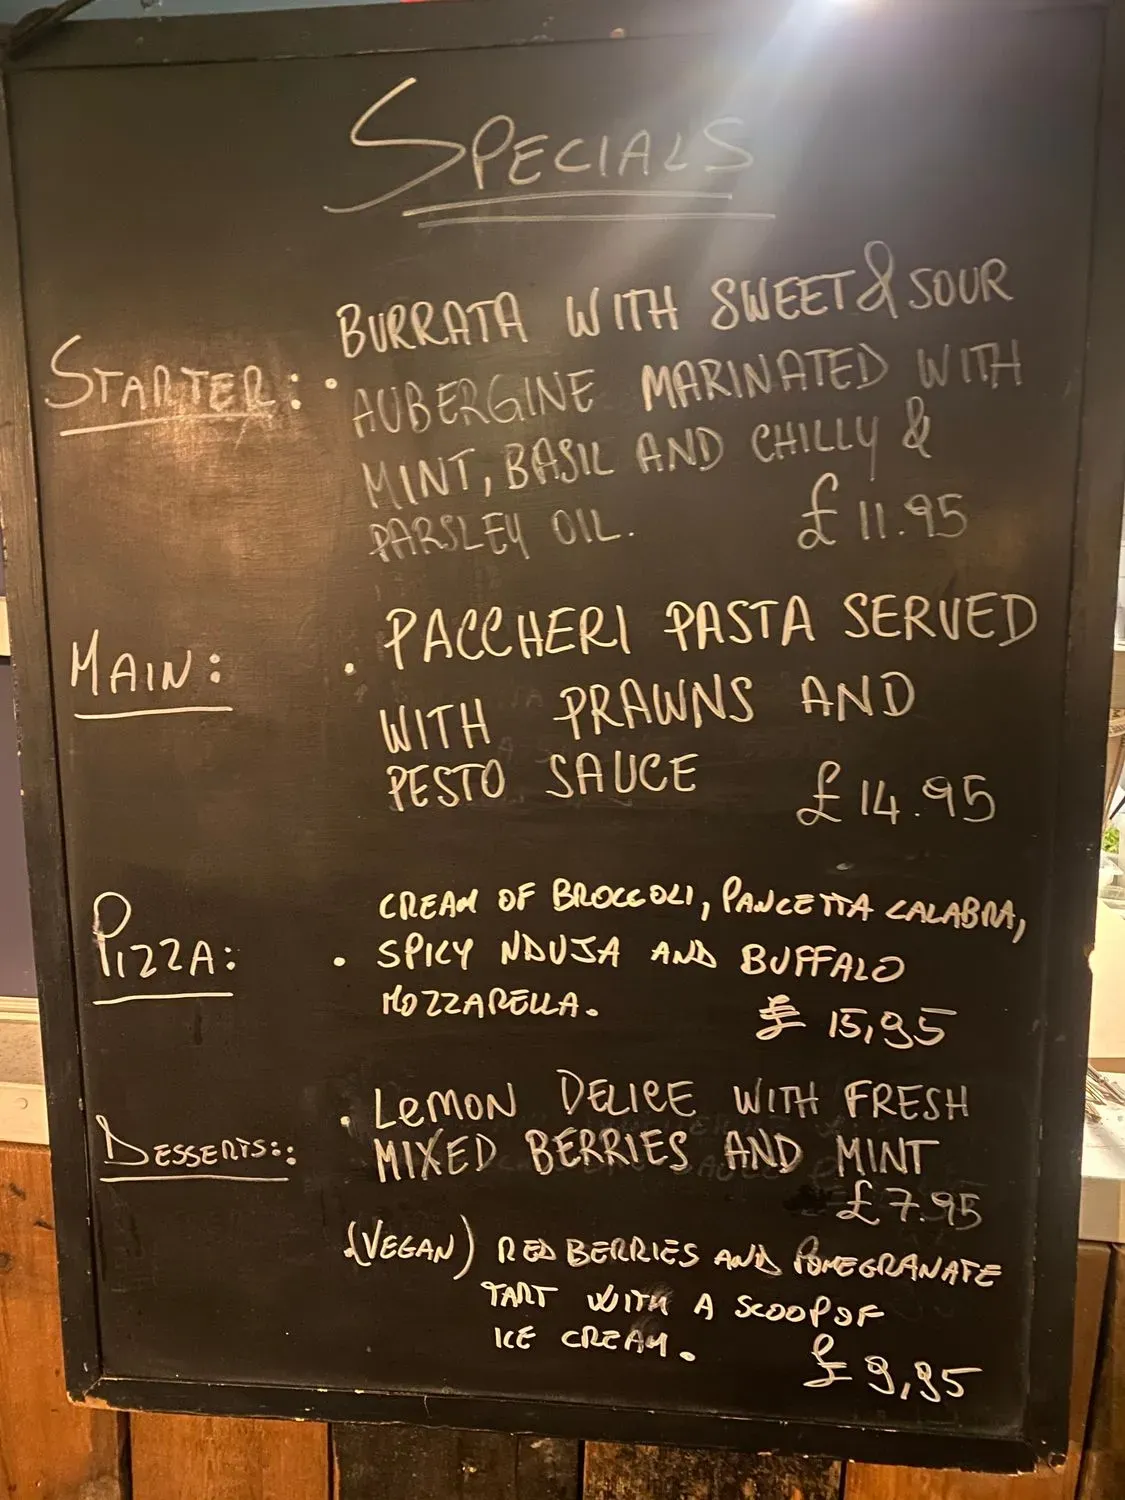 SPECIALS
STARTER: • BURRATA WITH SWEET & SOUR
AUBERGINE MARINATED WITH
MINT, BASIL AND CHILLY &
PARSLEY OIL. £11.95
MAIN: • PACCHERI PASTA SERVED
WITH PRAWNS AND
PESTO SAUCE £14.95
PIZZA: • CREAM OF BROCCOLI, PANCETTA CALABRA,
SPICY NDUJA AND BUFFALO
MOZZARELLA. £15,95
DESSERTS:: • LEMON DELICE WITH FRESH
MIXED BERRIES AND MINT
£7.95
(VEGAN) RED BERRIES AND POMEGRANATE
TART WITH A SCOOP OF
ICE CREAM. £9,95